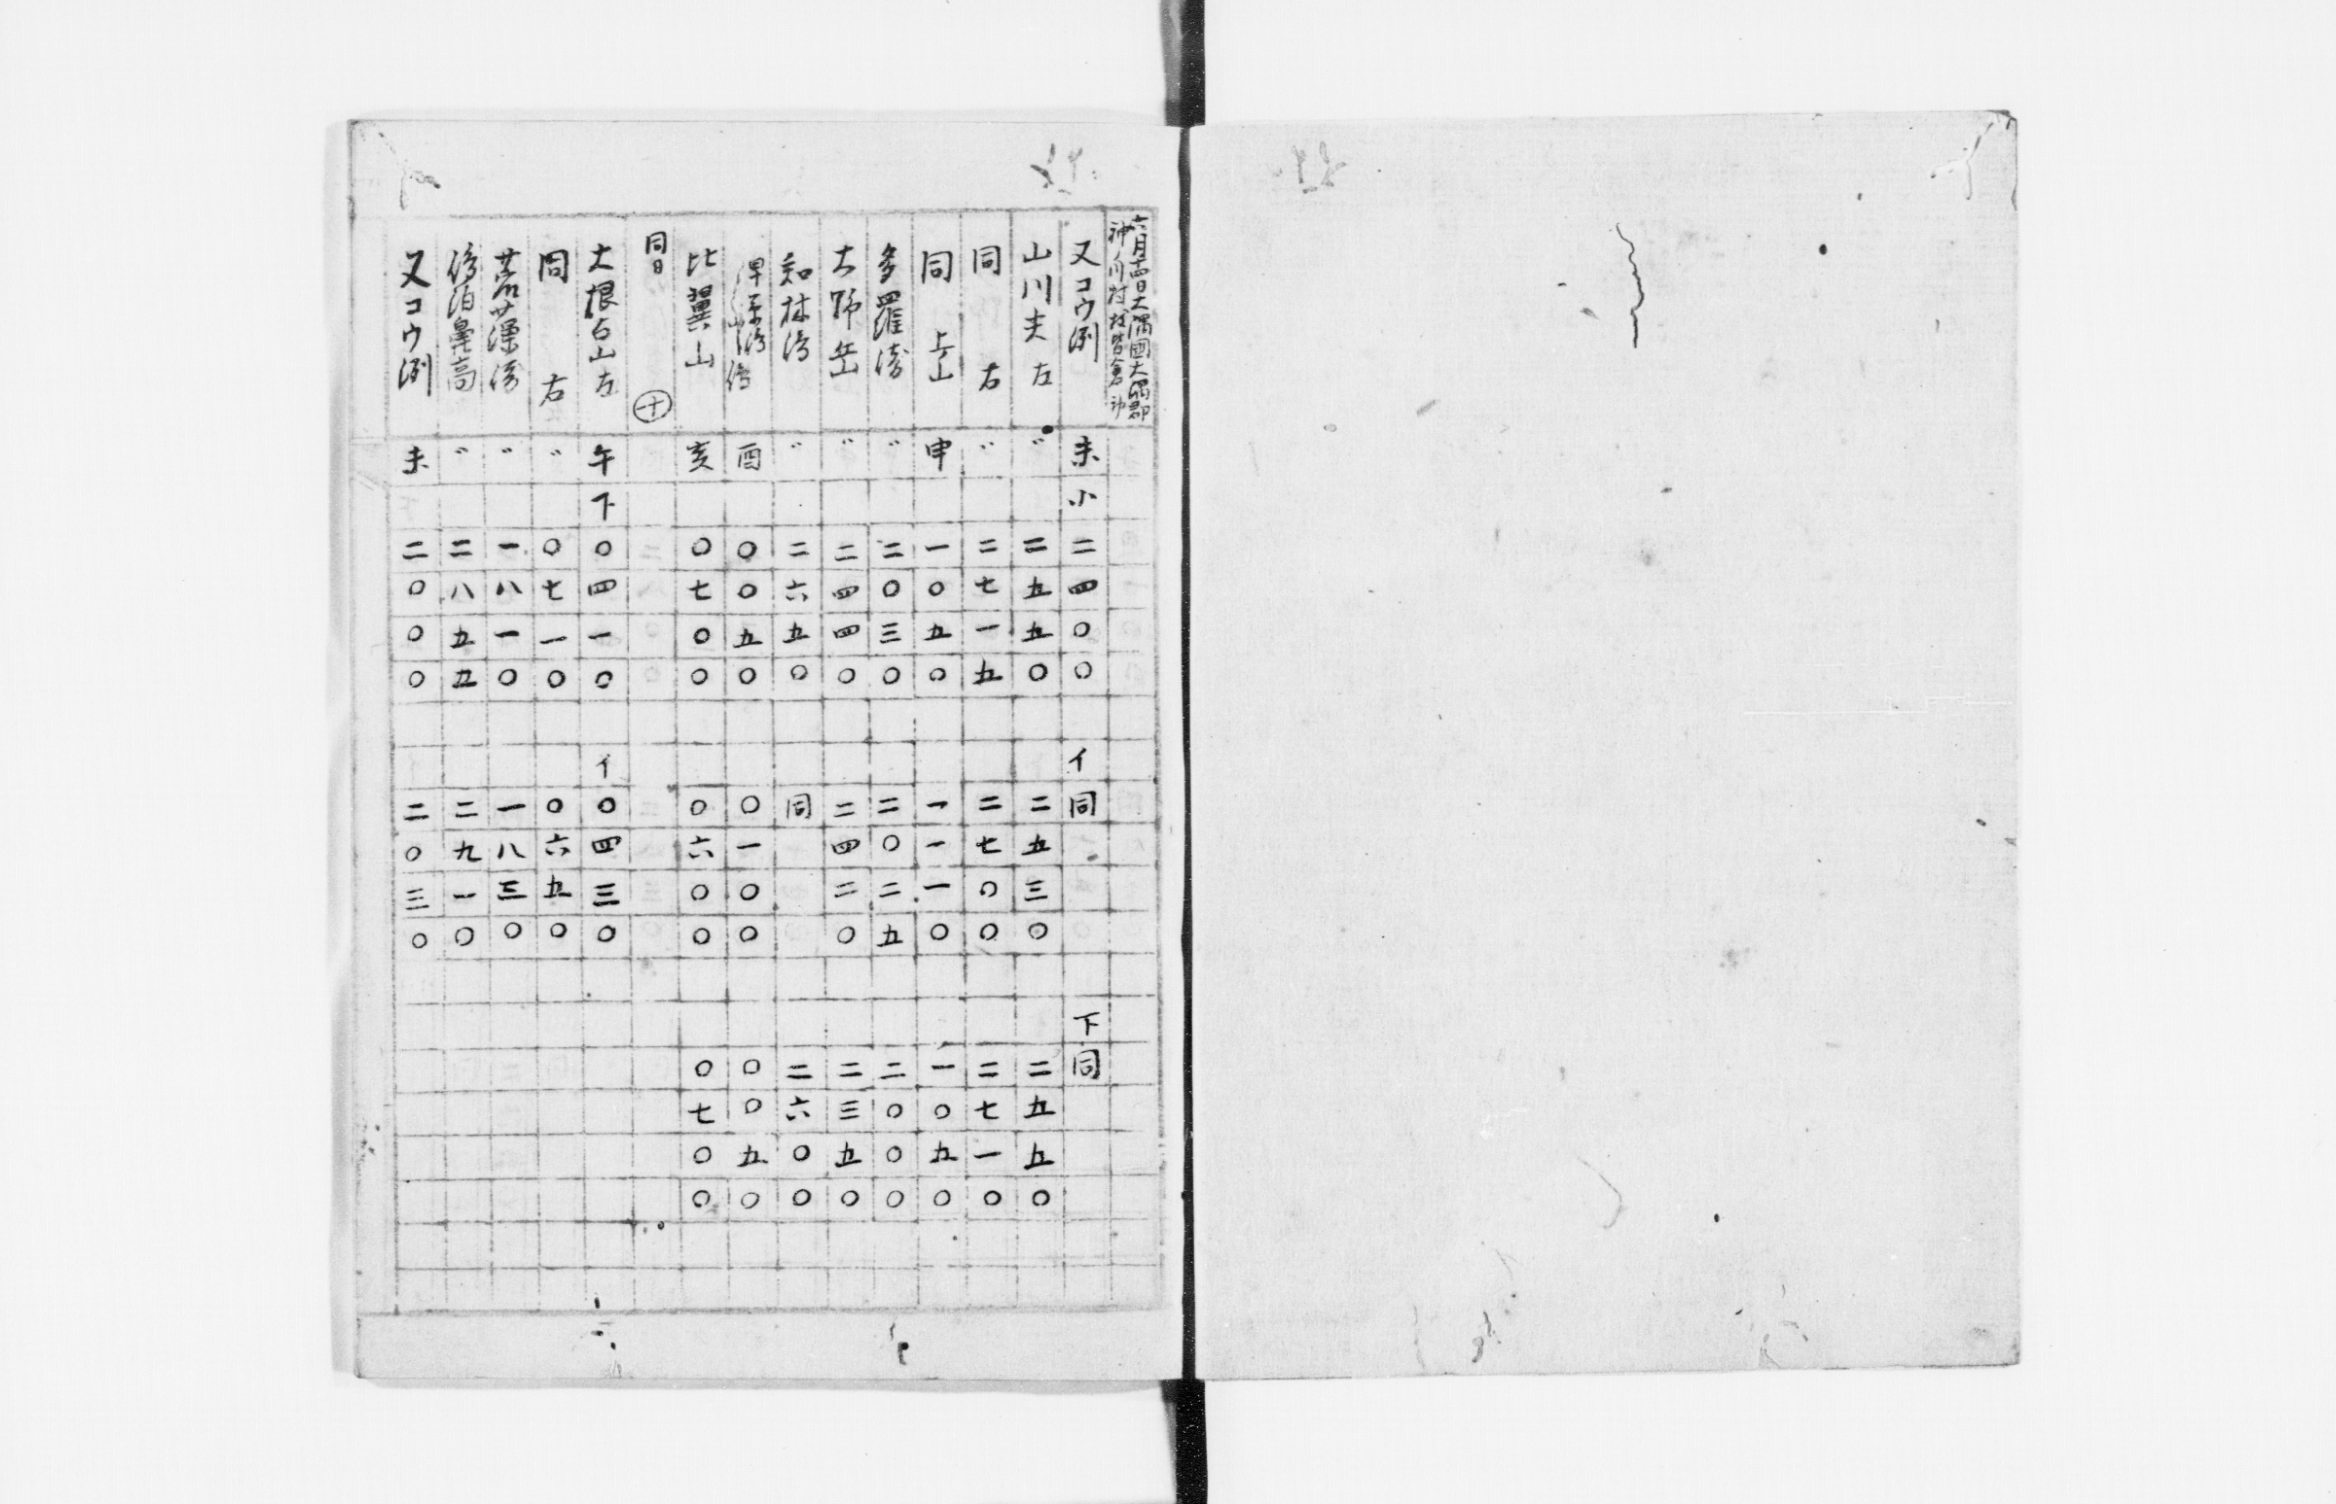 六月十四日大隅國大隅郡
神ノ川村
又コウ渕 未小二四〇〇 イ同 下同
山川夫左 〃二五五〇 二五三〇 二五五〇
同右 〃二七一五 二七〇〇 二七一〇
同上山 申一〇五〇 一一一〇 一〇五〇
多羅 〃二〇三〇 二〇二五 二〇〇〇
大野岳 〃二四四〇 二四二〇 二三五〇
知林 〃二六五〇 同 二六〇〇
酉〇〇五〇 〇一〇〇 〇〇五〇
比翼山 亥〇七〇〇 〇六〇〇 〇七〇〇
同日 十
大根占山左 午下〇四一〇 イ〇四三〇
同右 〃〇七一〇 〇六五〇
〃一八一〇 一八三〇
泊鼻高 〃二八五五 二九一〇
又コウ渕 未二〇〇〇 二〇三〇